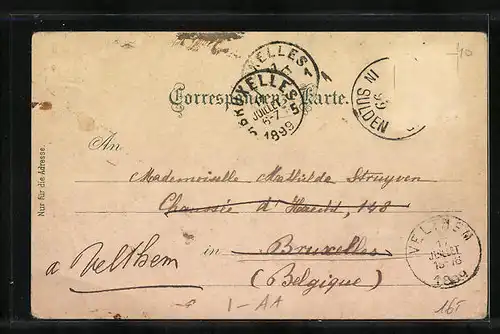 BRUXELLES
BRUXELLES 5
JUILLET
6-7
1899
IN SULDEN
99
Correspondenz-Karte.
Nur für die Adresse.
An
Mademoiselle Mathilde Struyven
Chaussée d'Haecht, 148
in Bruxelles
a Velthem
(Belgique)
VELTHEM
17
JUILLET
15-16
1899
I-AA
165